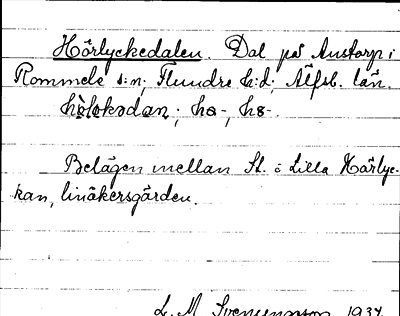 Hårlyckedalen. Dal på Anstorp i
Rommele s:n; Flundre h:d; Älfsb. län.
hò̀lokədαn; hα-, hə-.
Belägen mellan St. o Lilla Hårlyc-
kan, linåkersgården.
L. M. Svensunsson 1934